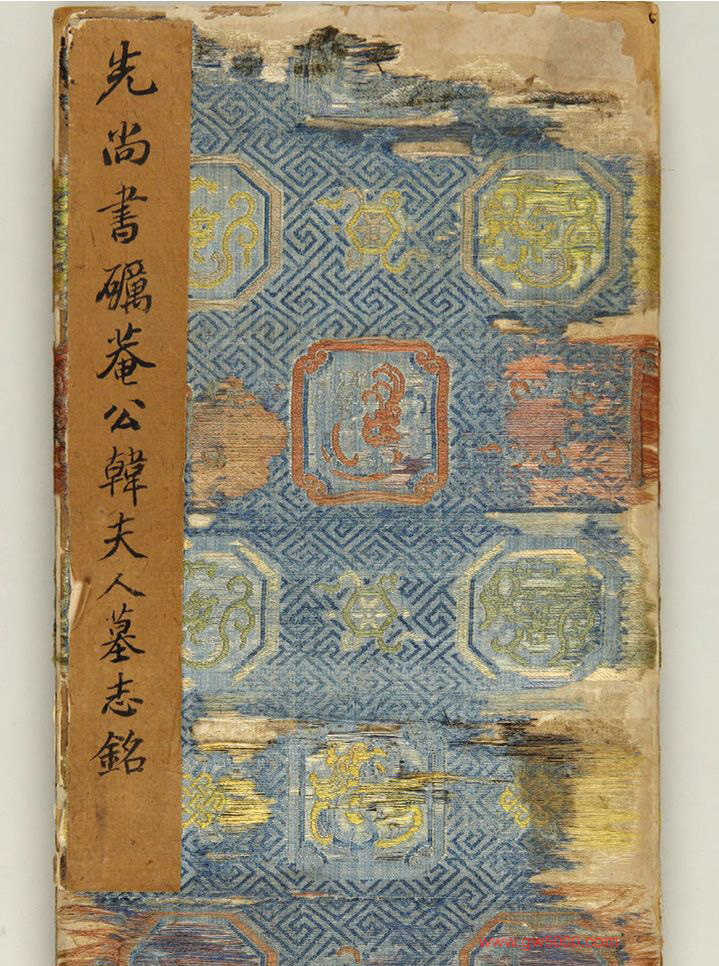 先尚書礪菴公韓夫人墓志銘
www.gw8000.com